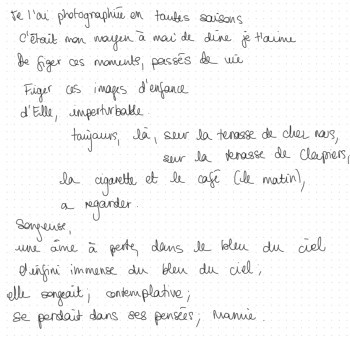 Je l'ai photographiée en toutes saisons
C'était mon moyen à moi de dire je t'aime
De figer ces moments, passés de vie
Figer ces images d'enfance
d'Elle, imperturbable
toujours, là, sur la terrasse de chez nous,
sur la terrasse de Clapiers,
la cigarette et le café (le matin),
a regarder.
Songeuse,
une âme à perte, dans le bleu du ciel
d'infini immense du bleu du ciel,
elle songeait, contemplative;
se perdait dans ses pensées, Mamie.